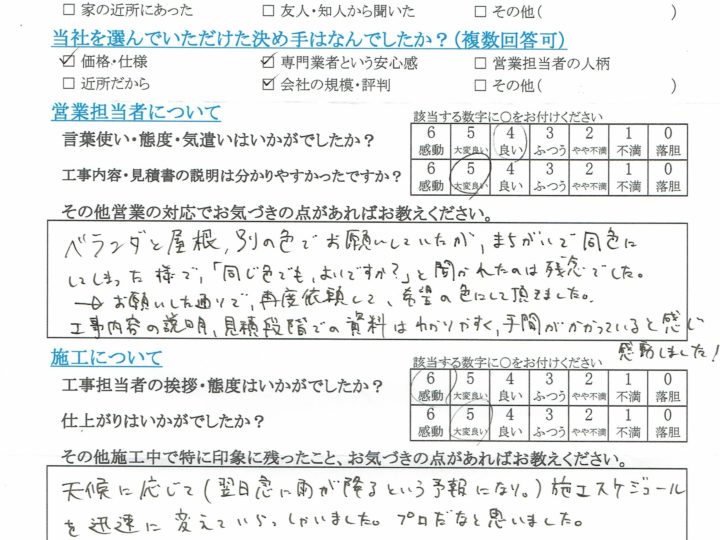 □ 家の近所にあった □ 友人・知人から聞いた □ その他( )
当社を選んでいただけた決め手はなんでしたか？(複数回答可)
☑ 価格・仕様 ☑ 専門業者という安心感 □ 営業担当者の人柄
□ 近所だから ☑ 会社の規模・評判 □ その他( )
営業担当者について 該当する数字に○をお付けください
言葉使い・態度・気遣いはいかがでしたか？ 6 5 4 3 2 1 0
感動 大変良い 良い ふつう やや不満 不満 落胆
工事内容・見積書の説明は分かりやすかったですか？ 6 5 4 3 2 1 0
感動 大変良い 良い ふつう やや不満 不満 落胆
その他営業の対応でお気づきの点があればお教えください。
ベランダと屋根,別の色でお願いしていたが,まちがいで同色に
してしまった様で,「同じ色でも,よいですか?」と聞かれたのは残念でした。
→お願いした通りで,再度依頼して,希望の色にして頂きました。
工事内容の説明,見積段階での資料はわかりやすく,手間がかかっていると感じ
感動しました!
施工について 該当する数字に○をお付けください
工事担当者の挨拶・態度はいかがでしたか？ 6 5 4 3 2 1 0
感動 大変良い 良い ふつう やや不満 不満 落胆
仕上がりはいかがでしたか？ 6 5 4 3 2 1 0
感動 大変良い 良い ふつう やや不満 不満 落胆
その他施工中で特に印象に残ったこと、お気づきの点があればお教えください。
天候に応じて(翌日急に雨が降るという予報になり。)施工スケジュール
を迅速に変えていらっしゃいました。プロだなと思いました。